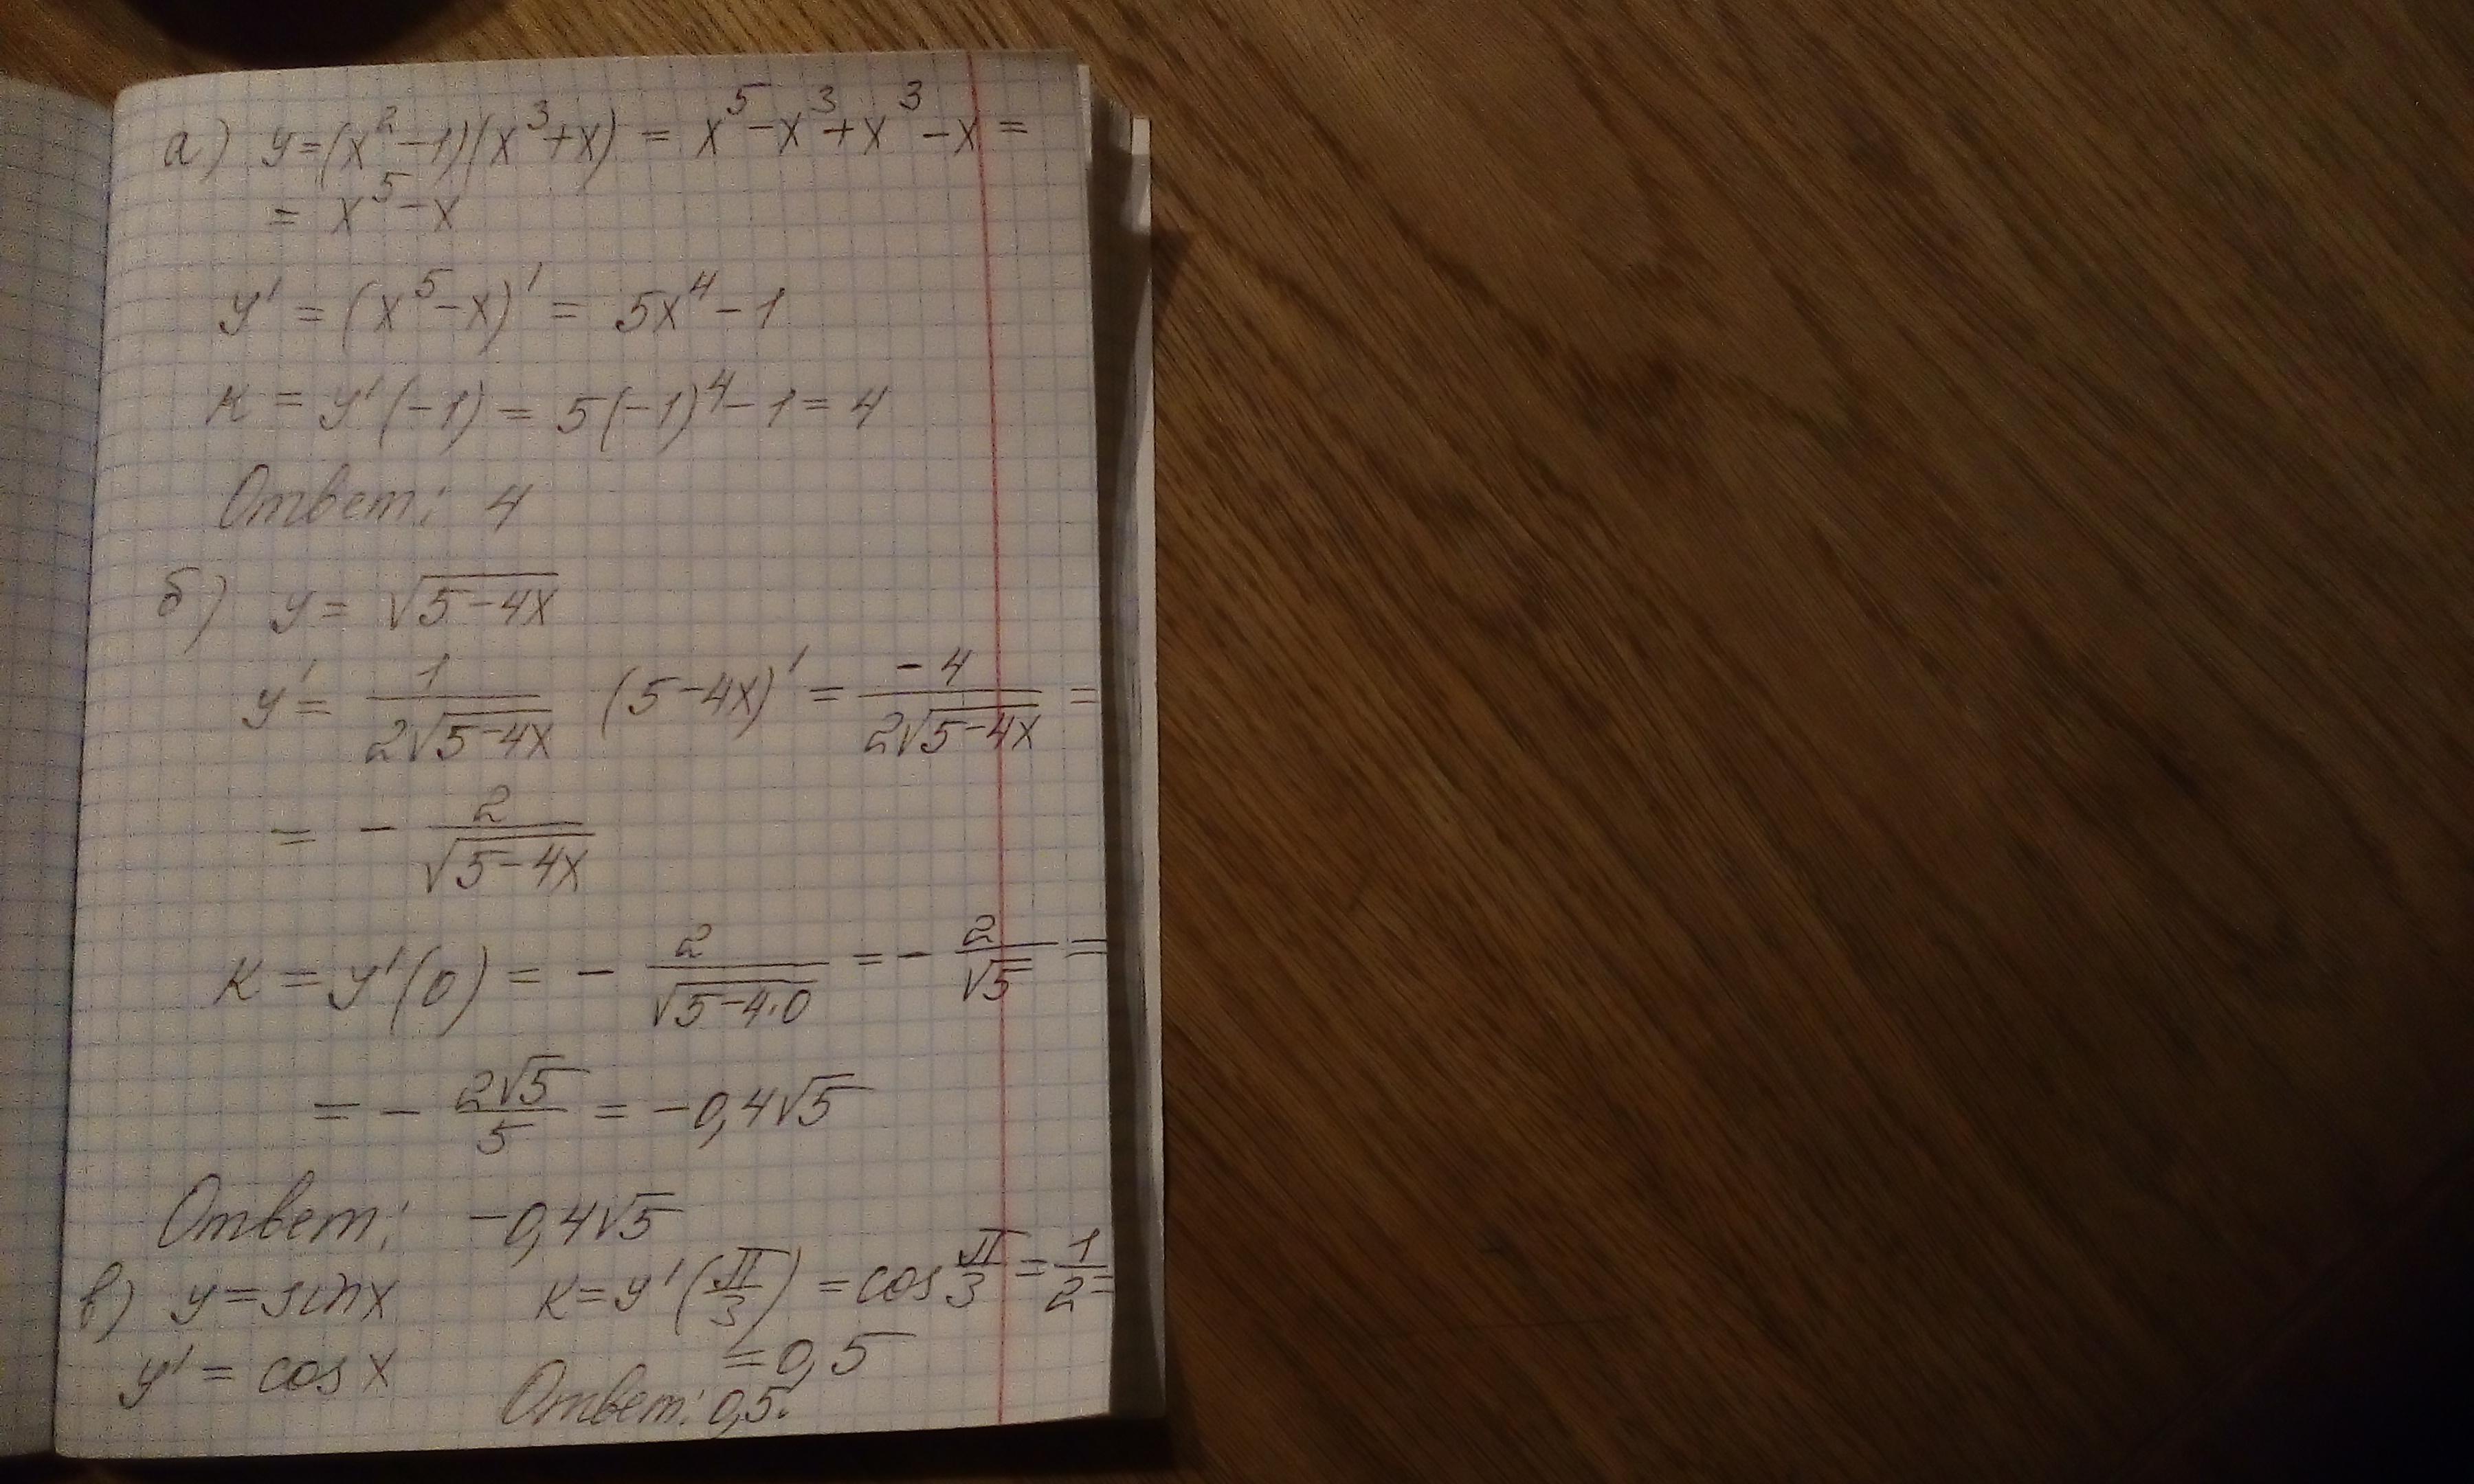 а) y=(x²-1)(x³+x) = x⁵-x³+x³-x =
= x⁵-x
y' = (x⁵-x)' = 5x⁴-1
к = y'(-1) = 5(-1)⁴-1=4
Ответ: 4
б) y= √(5-4x)
y' = 1/(2√(5-4x)) (5-4x)' = -4/(2√(5-4x)) =
= - 2/√(5-4x)
к = y'(0) = - 2/√(5-4·0) = - 2/√5 =
= - 2√5/5 = -0,4√5
Ответ: -0,4√5
в) y=sinx к=y'(π/3) =cos π/3 = 1/2 =
y' = cosx =0,5
Ответ: 0,5.